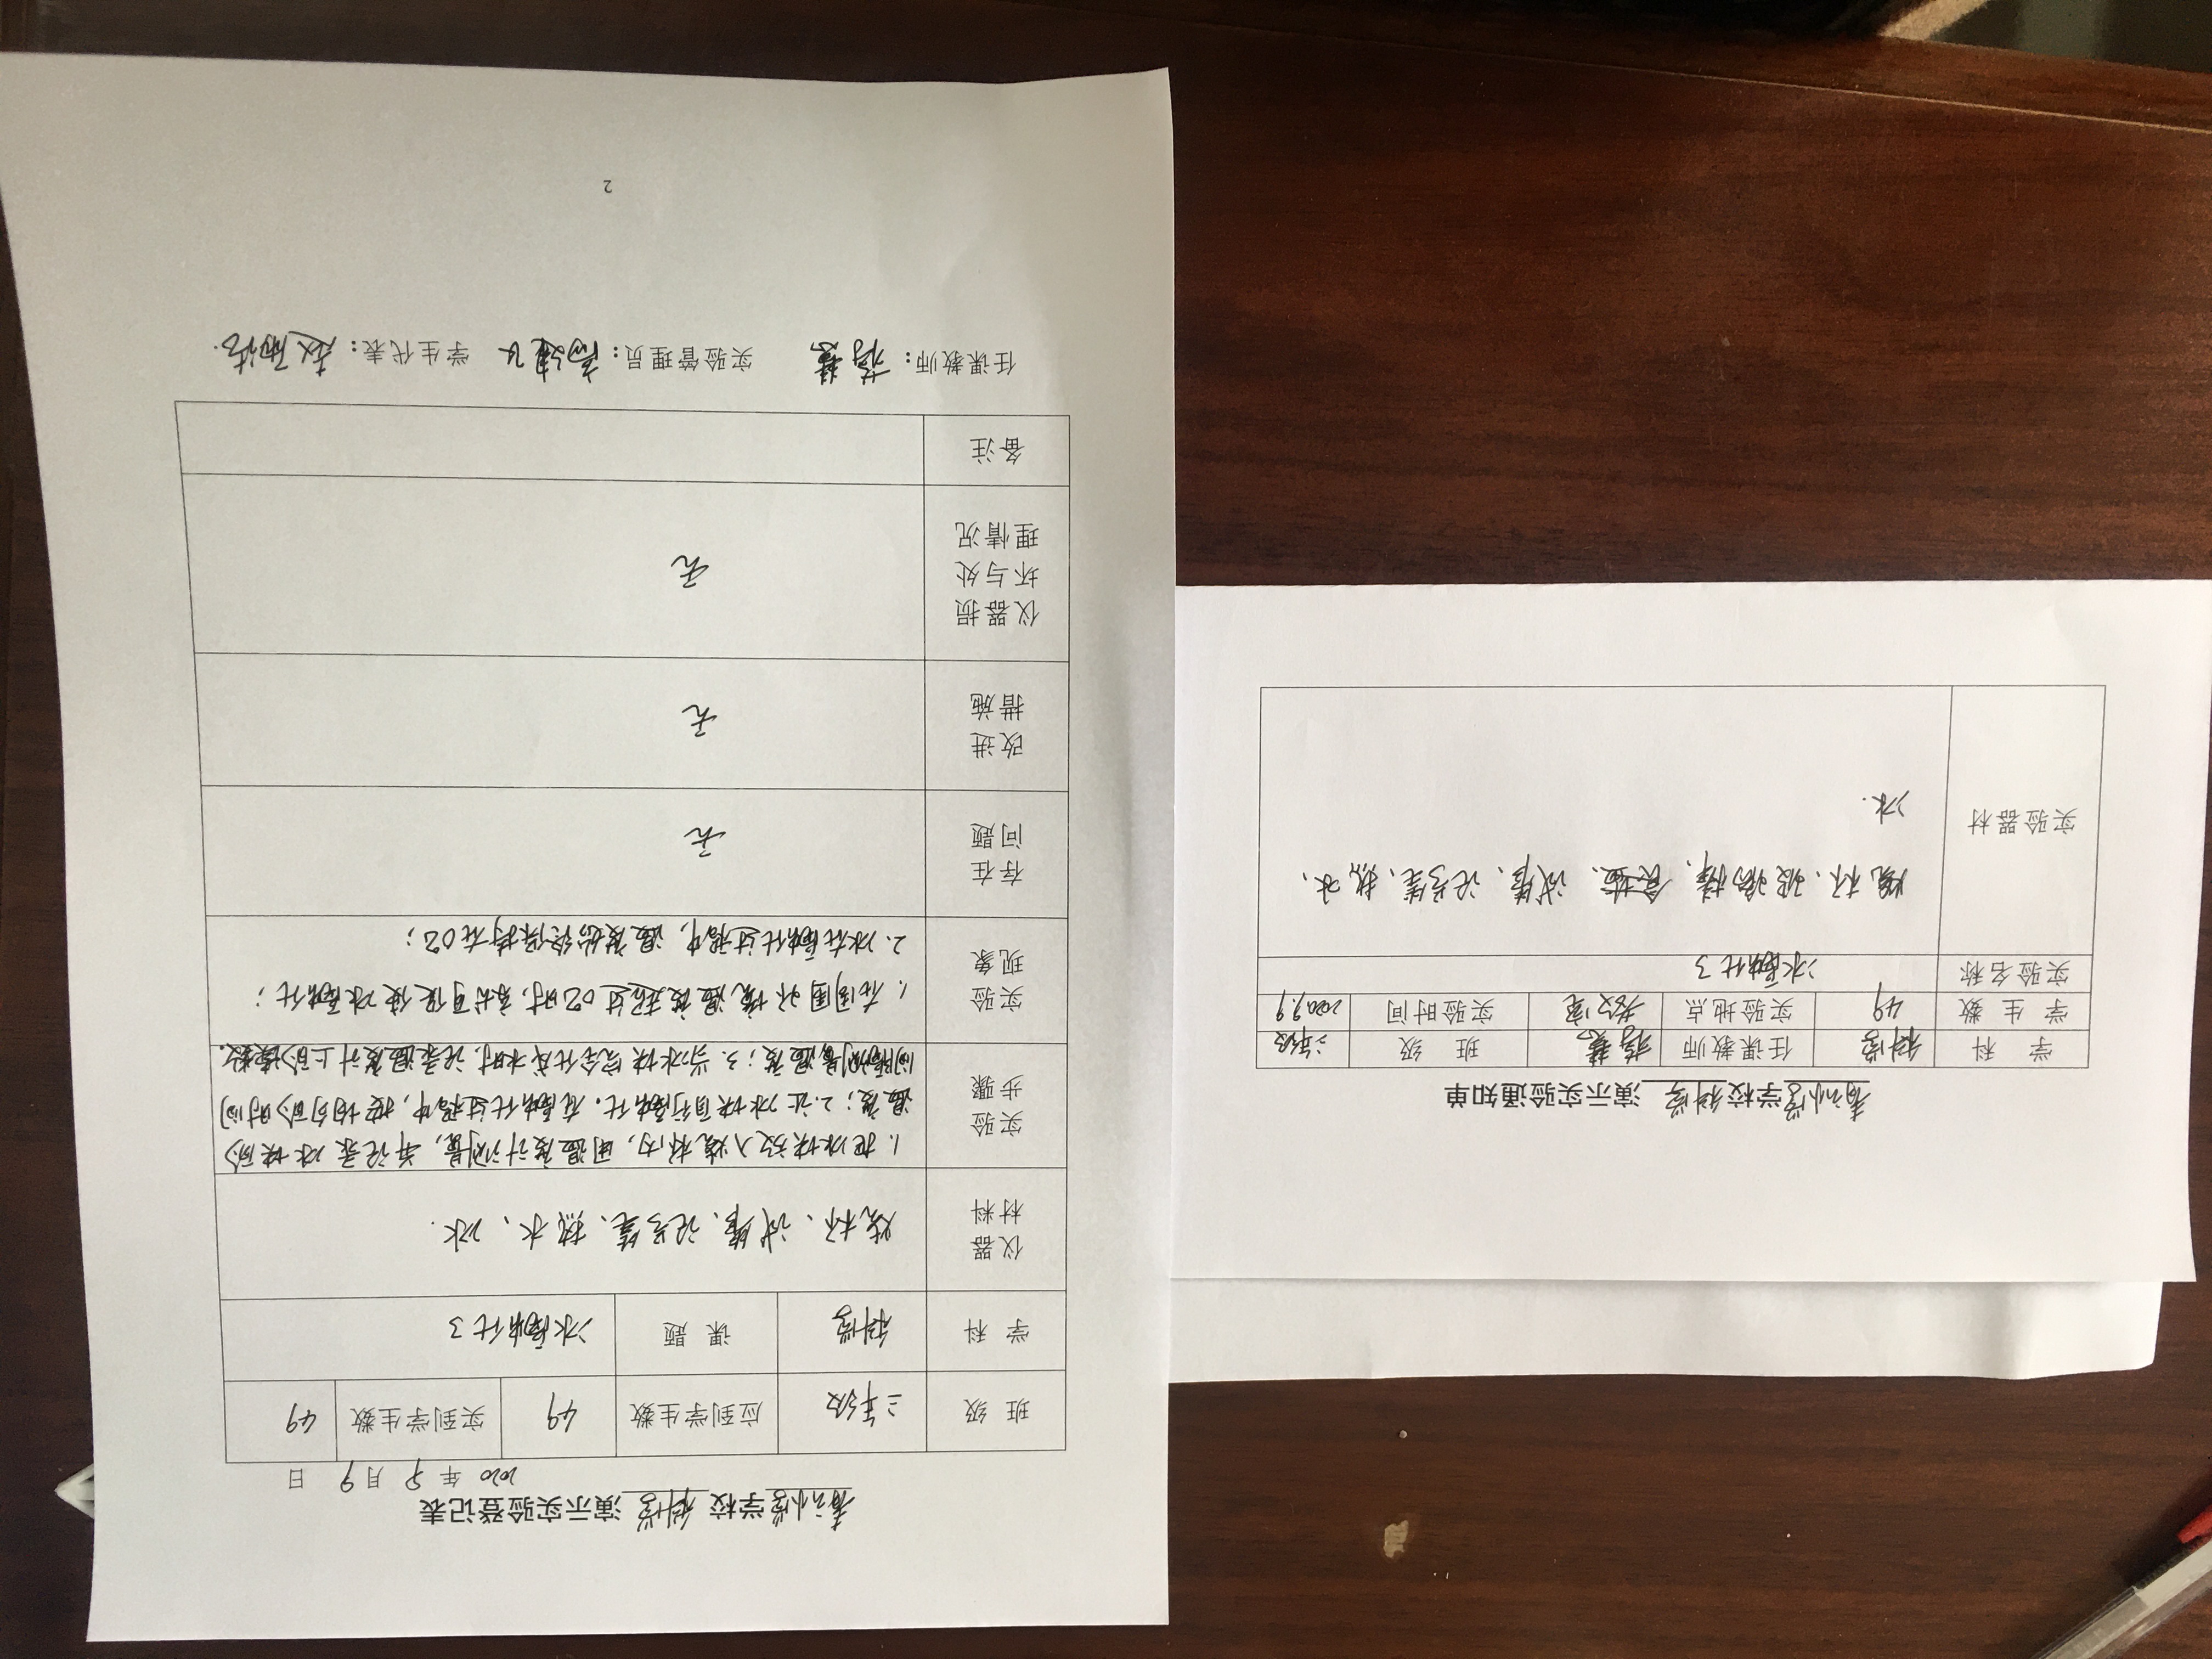 学校 科学 演示实验登记表
2020 年 9 月 9 日
班 级 三年级 应到学生数 49 实到学生数 49
学 科 科学 课 题 冰融化了
仪器
材料
烧杯、试管、记号笔、热水、冰.
实验
步骤
1. 把冰块放入烧杯内,用温度计测量,并记录冰块的
温度;2.让冰块自行融化。在融化过程中,按均匀的时间
间隔测量温度;3.当冰块完全化成水时,记录温度计上的读数.
实验
现象
1. 在周围环境温度超过0℃时,就可促使冰融化;
2. 冰在融化过程中,温度始终保持在0℃;
存在
问题
无
改进
措施
无
仪器损
坏与处
理情况
无
备注
任课教师: 实验管理员: 学生代表: 赵
2
学校 科学 演示实验通知单
学 科 科学 任课教师 班 级 三年级
学 生 数 49 实验地点 教室 实验时间 2020.9.9
实验名称 冰融化了
实验器材
烧杯、玻璃棒、食盐、试管、记号笔、热水、
冰.